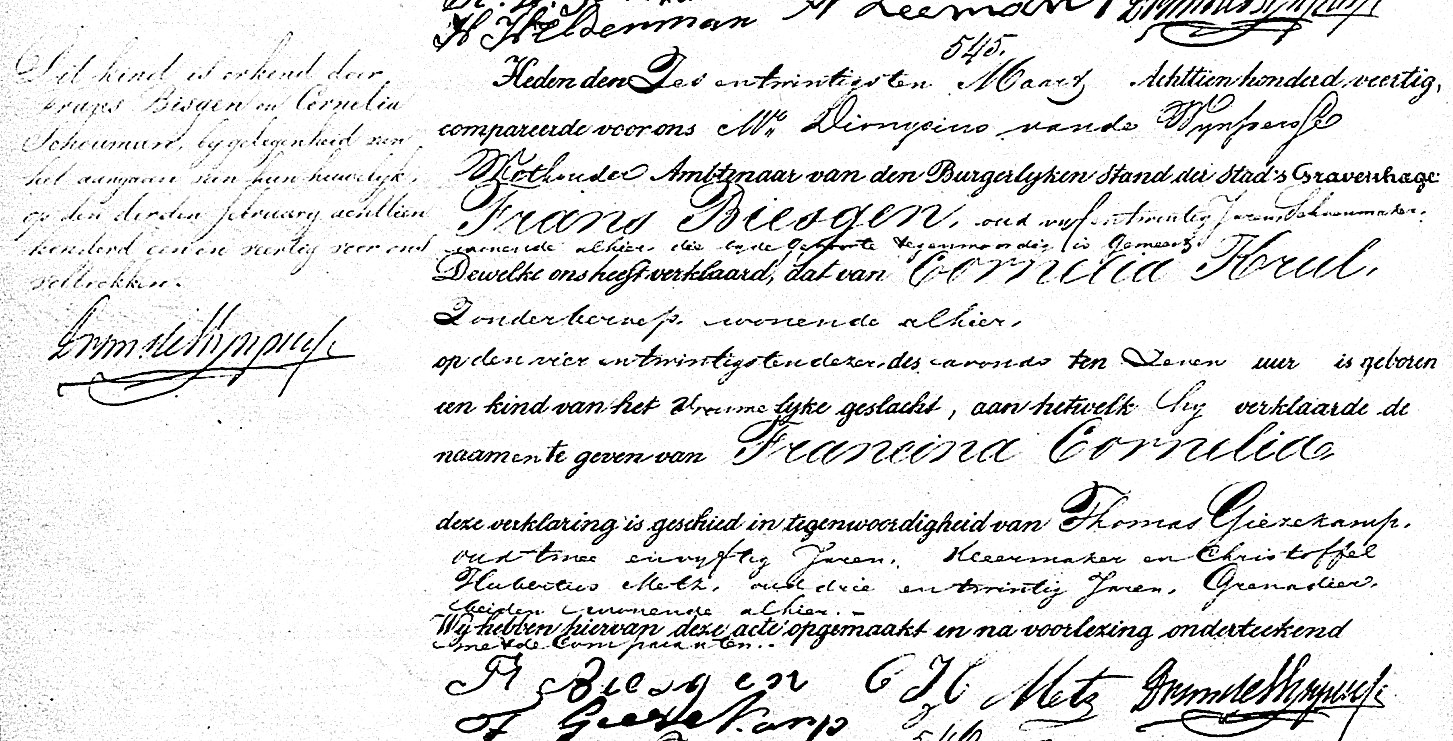 H Helderman
Dit kind is erkend door
Frans Biesgen en Cornelia
Scheurman, by gelegenheid van
het aangaan van hun huwelyk,
op den derden february achttien
honderd een en veertig voor ons
voltrokken.
545.
Heden den Zes en twintigsten Maart Achttien honderd veertig,
compareerde voor ons Mr. Dionysius van de Wynpersse
Wethouder Ambtenaar van den Burgerlyken Stand der Stad 's Gravenhage
Frans Biesgen, oud vyf en twintig Jaren, Schoenmaker,
wonende alhier, die by de geboorte tegenwoordig is geweest
Dewelke ons heeft verklaard, dat van Cornelia Krul,
Zonder beroep, wonende alhier,
op den vier en twintigsten dezer, des avonds ten Zeven uur is geboren
een kind van het Vrouwelyke geslacht, aan hetwelk hy verklaarde de
naamen te geven van Francina Cornelia
deze verklaring is geschied in tegenwoordigheid van Thomas Giezekamp,
oud twee en vyftig Jaren, Kleermaker en Christoffel
Hubertus Metz, oud drie en twintig Jaren, Grenadier,
beiden wonende alhier. -
Wy hebben hiervan deze acte opgemaakt en na voorlezing onderteekend
met de Comparanten.
Fr Biesgen C H Metz
T Giezekamp
546